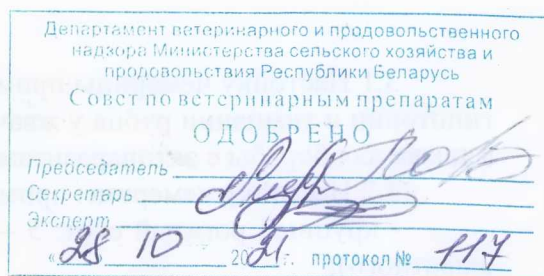 Департамент ветеринарного и продовольственного
надзора Министерства сельского хозяйства и
продовольствия Республики Беларусь
Совет по ветеринарным препаратам
ОДОБРЕНО
Председатель
Секретарь
Эксперт
«28 10 2021 г. протокол № 117